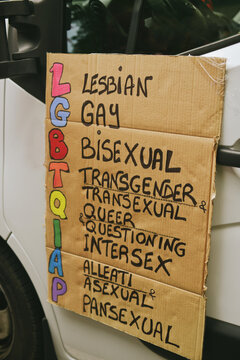 L LESBIAN
G GAY
B BISEXUAL
T TRANSGENDER &
TRANSEXUAL
Q QUEER &
QUESTIONING
I INTERSEX
A ALLEATI &
ASEXUAL
P PANSEXUAL